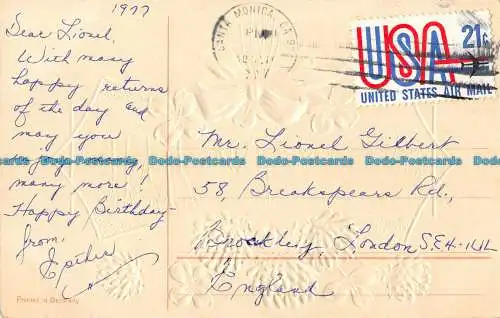 1977
Dear Lionel,
With many
happy returns
of the day and
may you
enjoy many,
many more!
Happy Birthday-
from,
Esther
SANTA MONICA, CA
PM
USA 21c
UNITED STATES AIR MAIL
Mr. Lionel Gilbert
58, Breakspears Rd.,
Brockley, London S.E4-1UL
England
Dodo-Postcards Dodo-Postcards Dodo-Postcards Dodo-Postcards Dodo-Postcards
Printed in Germany